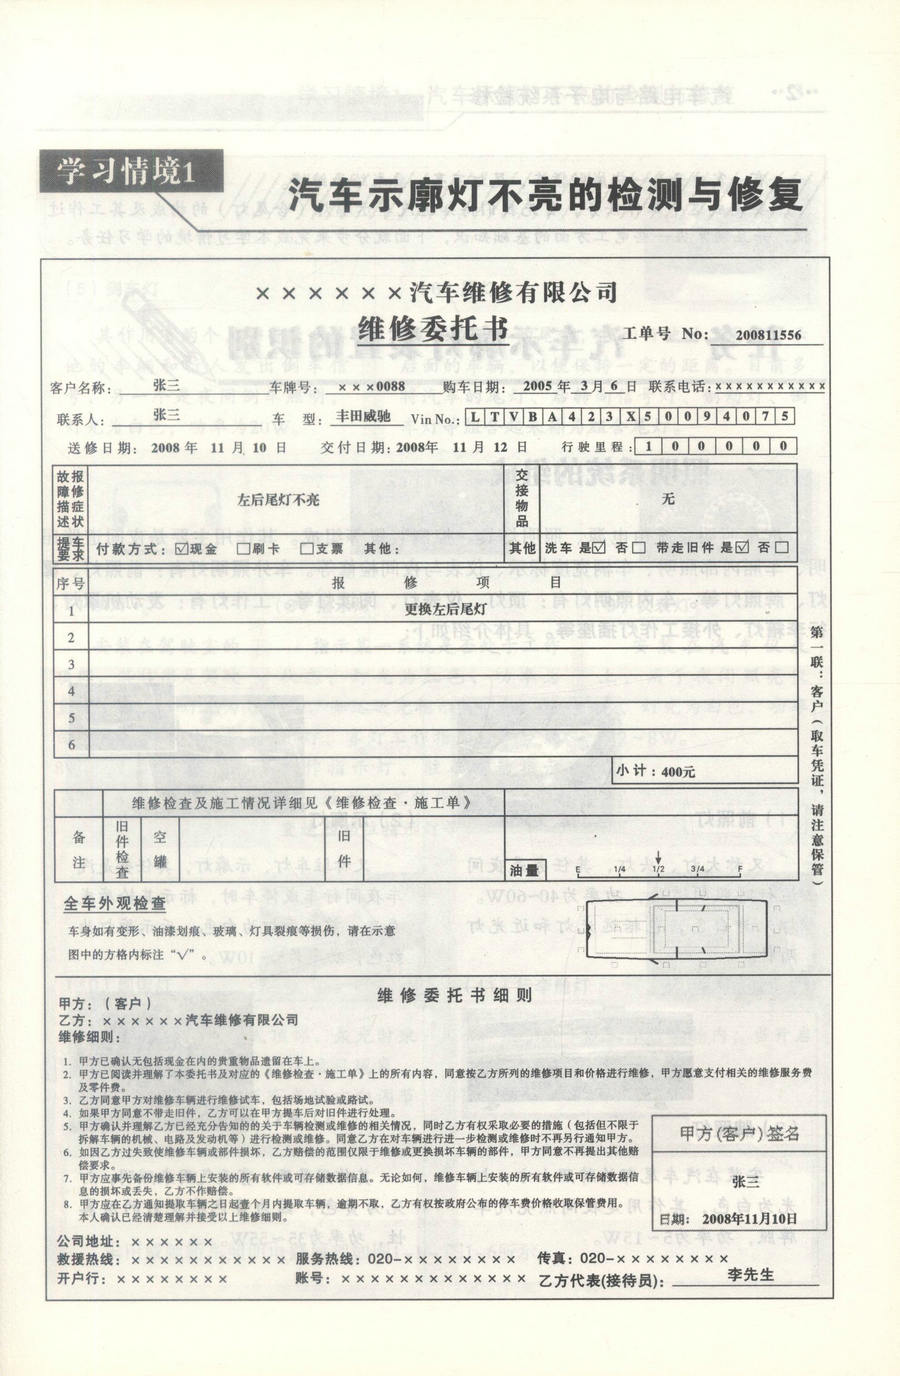 学习情境1
汽车示廓灯不亮的检测与修复
××××××汽车维修有限公司
维修委托书
工单号 No: 200811556
客户名称: 张三 车牌号: ×××0088 购车日期: 2005 年 3 月 6 日 联系电话:×××××××××××
联系人: 张三 车 型: 丰田威驰 Vin No.: L T V B A 4 2 3 X 5 0 0 9 4 0 7 5
送修日期: 2008 年 11 月 10 日 交付日期: 2008年 11 月 12 日 行驶里程: 1 0 0 0 0 0
故障描述 报修症状 左后尾灯不亮 交接物品 无
提车要求 付款方式: ☑现金 □刷卡 □支票 其他: 其他 洗车 是☑ 否□ 带走旧件 是☑ 否□
序号 报 修 项 目
1 更换左后尾灯
2
3
4
5
6
小计:400元
第一联:客户(取车凭证,请注意保管)
维修检查及施工情况详细见《维修检查·施工单》
备注 旧件检查 空罐 旧件
油量 E 1/4 1/2 3/4 F
全车外观检查
车身如有变形、油漆划痕、玻璃、灯具裂痕等损伤,请在示意
图中的方格内标注“√”。
维修委托书细则
甲方:(客户)
乙方:××××××汽车维修有限公司
维修细则:
1. 甲方已确认无包括现金在内的贵重物品遗留在车上。
2. 甲方已阅读并理解了本委托书及对应的《维修检查·施工单》上的所有内容,同意按乙方所列的维修项目和价格进行维修,甲方愿意支付相关的维修服务费
及零件费。
3. 乙方同意甲方对维修车辆进行维修试车,包括场地试验或路试。
4. 如果甲方同意不带走旧件,乙方可以在甲方提车后对旧件进行处理。
5. 甲方确认并理解乙方已经充分告知的的关于车辆检测或维修的相关情况,同时乙方有权采取必要的措施(包括但不限于
拆解车辆的机械、电路及发动机等)进行检测或维修。同意乙方在对车辆进行进一步检测或维修时不再另行通知甲方。
6. 如因乙方过失致使维修车辆或部件损坏,乙方赔偿的范围仅限于维修或更换损坏车辆的部件,甲方同意不再提出其他赔
偿要求。
7. 甲方应事先备份维修车辆上安装的所有软件或可存储数据信息。无论如何,维修车辆上安装的所有软件或可存储数据信
息的损坏或丢失,乙方不作赔偿。
8. 甲方应在乙方通知提取车辆之日起壹个月内提取车辆,逾期不取,乙方有权按政府公布的停车费价格收取保管费用。
本人确认已经清楚理解并接受以上维修细则。
甲方(客户)签名
张三
日期: 2008年11月10日
公司地址:××××××
救援热线:××××××××××× 服务热线:020-×××××××× 传真:020-××××××××
开户行:×××××××× 账号:××××××××××××× 乙方代表(接待员): 李先生